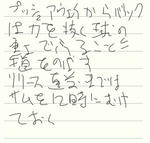 プッシュアウェイからバック
は力を抜く球の
重さでふることに
手首をのばす
リリースを主までは
サムを12時にむけ
ておく